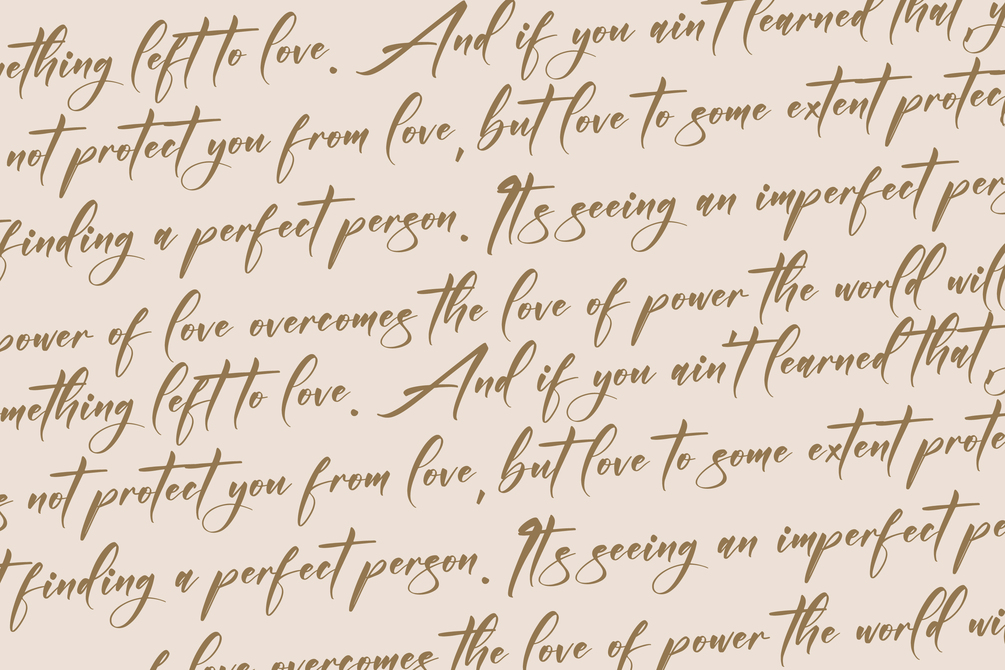 ething left to love. And if you ain't learned that, y
not protect you from love, but love to some extent protec
finding a perfect person. It's seeing an imperfect per
power of love overcomes the love of power the world will
mething left to love. And if you ain't learned that,
s not protect you from love, but love to some extent prote
t finding a perfect person. It's seeing an imperfect pe
f love overcomes the love of power the world wi